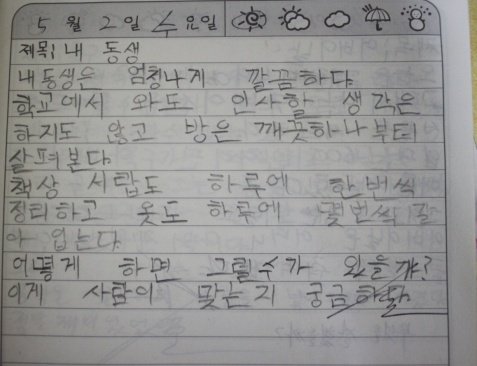 5월 2일 수요일
제목: 내 동생
내 동생은 엄청나게 깔끔하다.
학교에서 와도 인사할 생각은
하지도 않고 방은 깨끗하나부터
살펴본다.
책상 서랍도 하루에 한번씩
정티하고 옷도 하루에 몇번씩 갈
아 입는다.
어떻게 하면 그럴수가 있을까?
이게 사람이 맞는지 궁금하다.